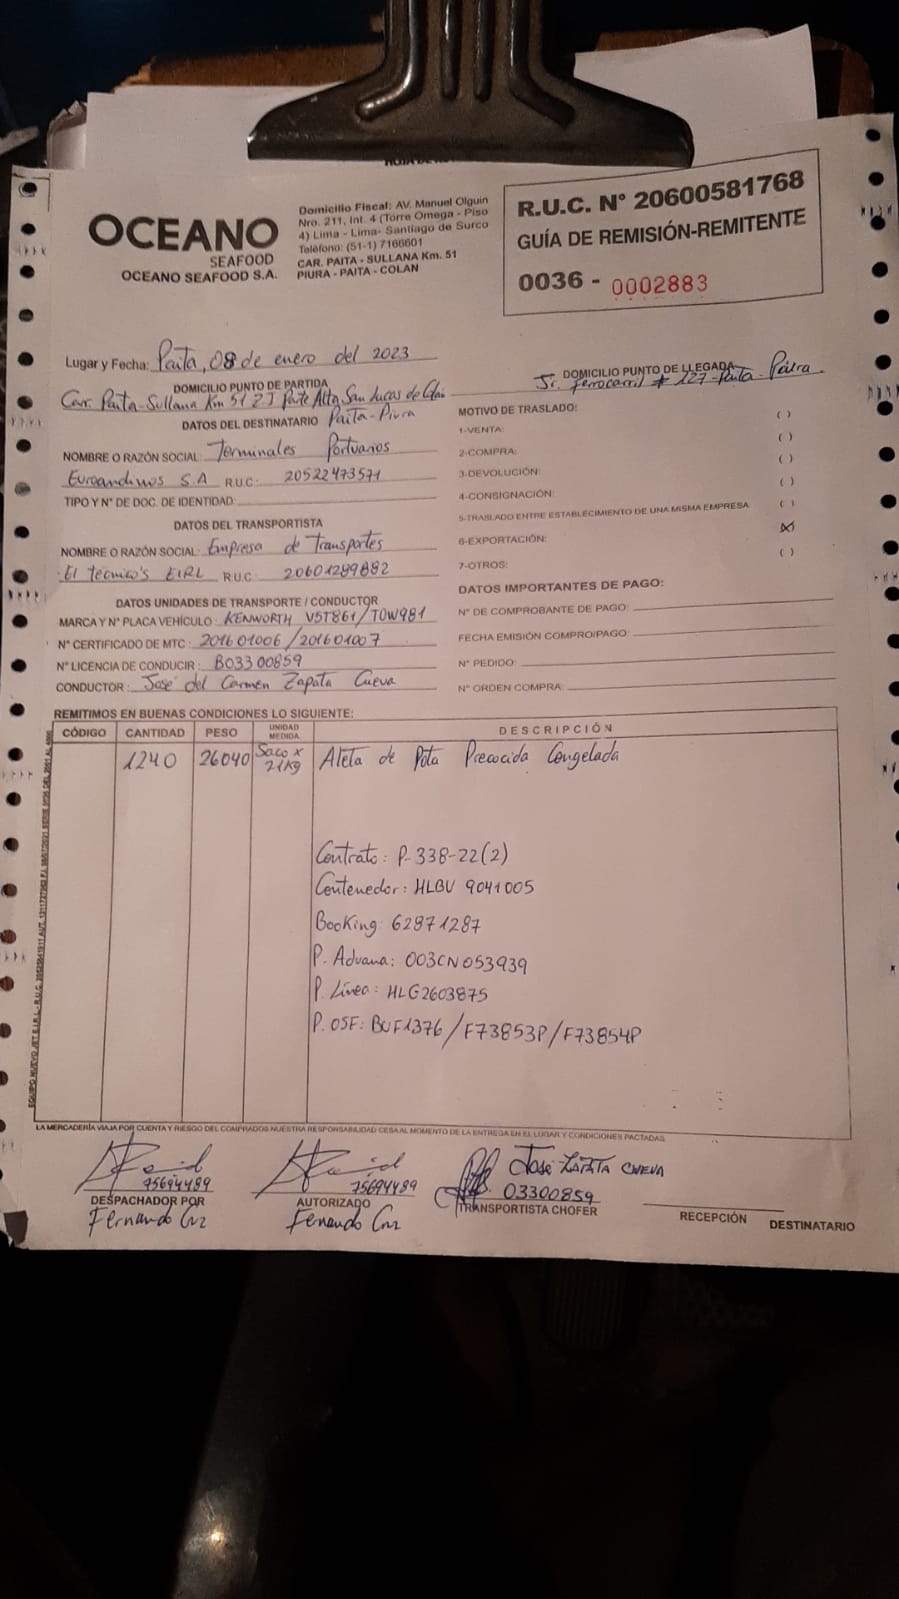 OCEANO
SEAFOOD
OCEANO SEAFOOD S.A.
Domicilio Fiscal: AV. Manuel Olguin
Nro. 211, Int. 4 (Torre Omega - Piso
4) Lima - Lima- Santiago de Surco
Teléfono: (51-1) 7166601
CAR. PAITA - SULLANA Km. 51
PIURA - PAITA - COLAN
R.U.C. N° 20600581768
GUÍA DE REMISIÓN-REMITENTE
0036 - 0002883
Lugar y Fecha: Paita, 08 de enero del 2023
DOMICILIO PUNTO DE PARTIDA
Car. Paita-Sullana Km 51 ZI Parte Alta San Lucas de Colán
Paita-Piura
DOMICILIO PUNTO DE LLEGADA
Jr. ferrocarril # 127-Paita-Paira
DATOS DEL DESTINATARIO
NOMBRE O RAZÓN SOCIAL: Terminales Portuarios
Euroandinos S.A R.U.C.: 20522473571
TIPO Y N° DE DOC. DE IDENTIDAD:
DATOS DEL TRANSPORTISTA
NOMBRE O RAZÓN SOCIAL: Empresa de Transportes
El tecnico's EIRL R.U.C: 20601289882
DATOS UNIDADES DE TRANSPORTE / CONDUCTOR
MARCA Y N° PLACA VEHÍCULO: KENWORTH V5T861/T0W981
N° CERTIFICADO DE MTC: 201601006/201601007
N° LICENCIA DE CONDUCIR: B03300859
CONDUCTOR: José del Carmen Zapata Cueva
MOTIVO DE TRASLADO:
1-VENTA: ( )
2-COMPRA: ( )
3-DEVOLUCIÓN: ( )
4-CONSIGNACIÓN: ( )
5-TRASLADO ENTRE ESTABLECIMIENTO DE UNA MISMA EMPRESA ( )
6-EXPORTACIÓN: (X)
7-OTROS: ( )
DATOS IMPORTANTES DE PAGO:
N° DE COMPROBANTE DE PAGO:
FECHA EMISIÓN COMPRO/PAGO:
N° PEDIDO:
N° ORDEN COMPRA:
REMITIMOS EN BUENAS CONDICIONES LO SIGUIENTE:
CÓDIGO CANTIDAD PESO UNIDAD MEDIDA DESCRIPCIÓN
1240 26040 Saco x 21Kg Aleta de Pota Precocida Congelada
Contrato: P-338-22(2)
Contenedor: HLBU 9041005
Booking: 62871287
P. Aduana: 003CN053939
P. Línea: HLG2603875
P. OSF: BUF1376/F73853P/F73854P
LA MERCADERÍA VIAJA POR CUENTA Y RIESGO DEL COMPRADOS NUESTRA RESPONSABILIDAD CESA AL MOMENTO DE LA ENTREGA EN EL LUGAR Y CONDICIONES PACTADAS
75694489
DESPACHADOR POR
Fernando Cruz
75694489
AUTORIZADO
Fernando Cruz
José ZAPATA CUEVA
03300859
TRANSPORTISTA CHOFER
RECEPCIÓN DESTINATARIO